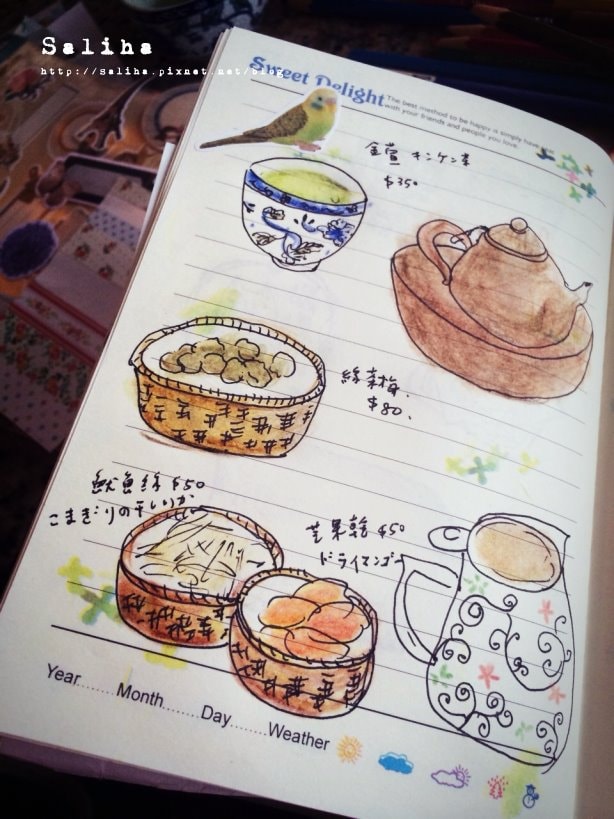 Saliha
http://saliha.pixnet.net/blog
Sweet Delight
The best method to be happy is simply have fun
with your friends and people you love.
金萱 キンケン茶
$350
綠茶梅
$80
魷魚絲 $50
こまぎりの干しいか
芒果乾 $50
ドライマンゴー
Year........Month........Day........Weather